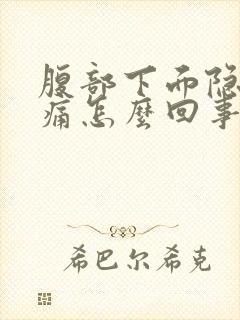 腹部下面隐
痛怎麽回事
希巴尔希克